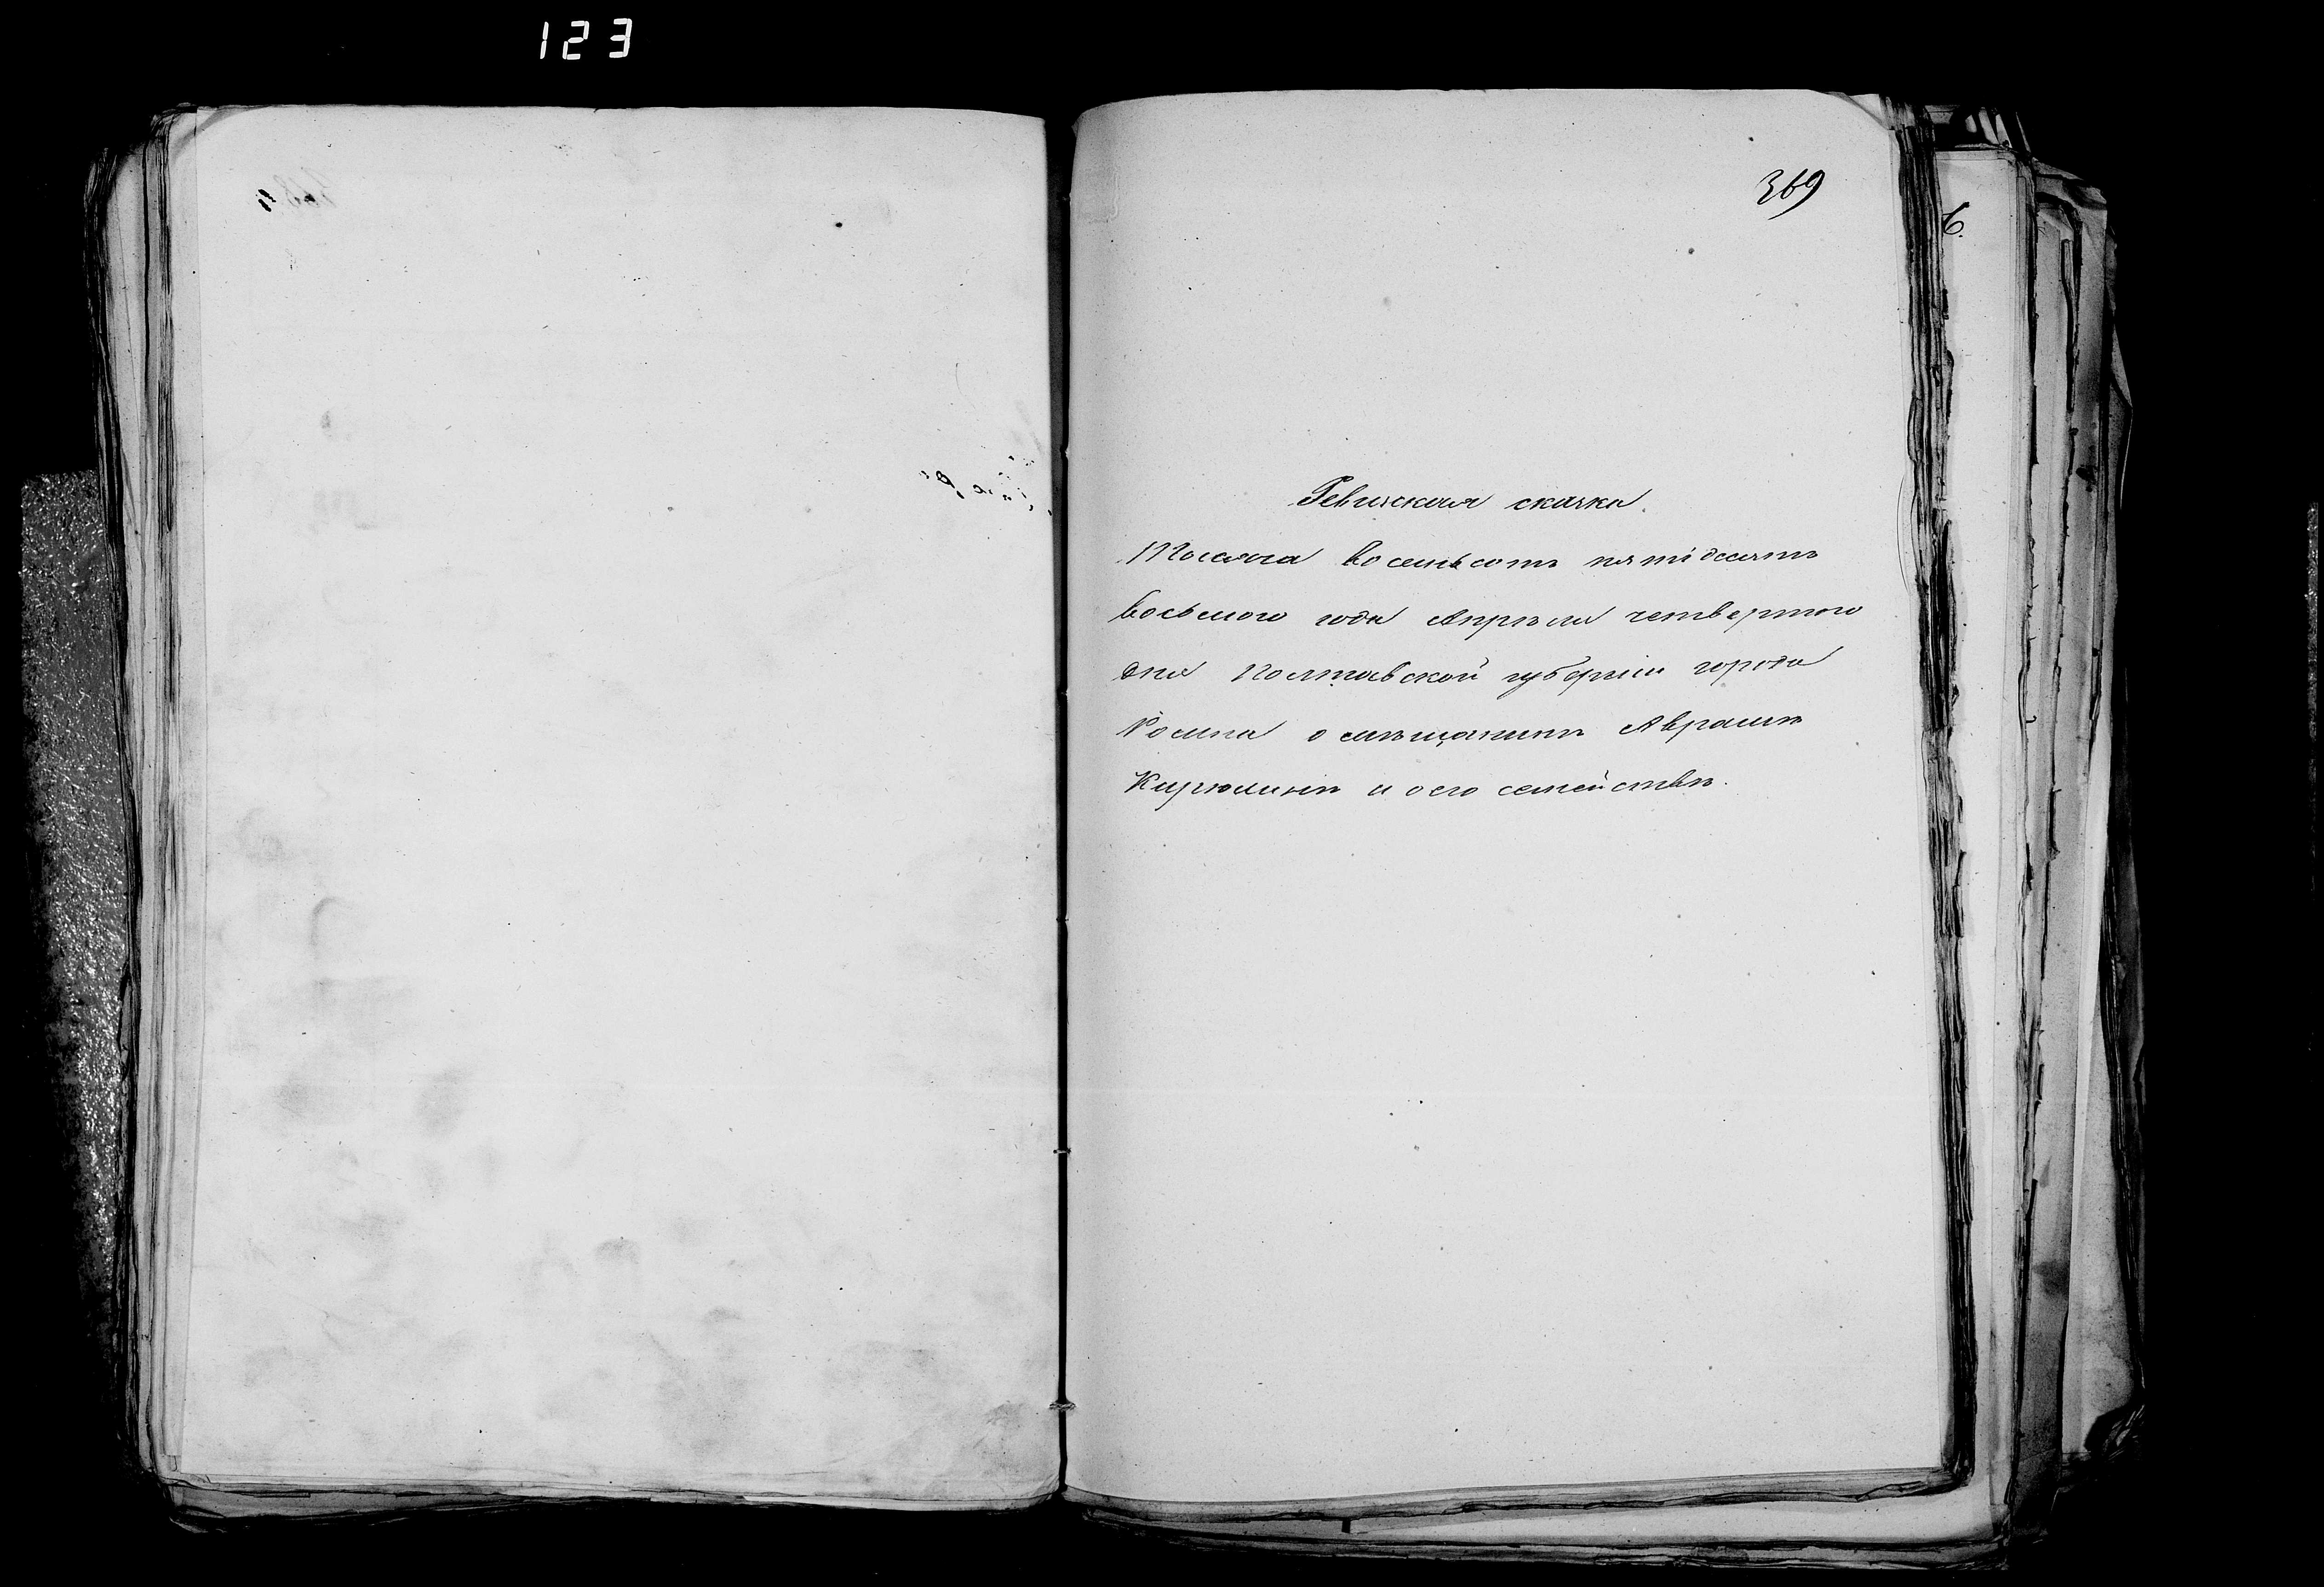 123
369
Ревизская сказка.
Тысяча восемьсотъ пятідесятъ
восьмого года Апрѣля четвертого
дня Полтавской губерніи города
Ромна о мѣщанинѣ Аврамѣ
Кирюлинѣ и о его семействѣ.